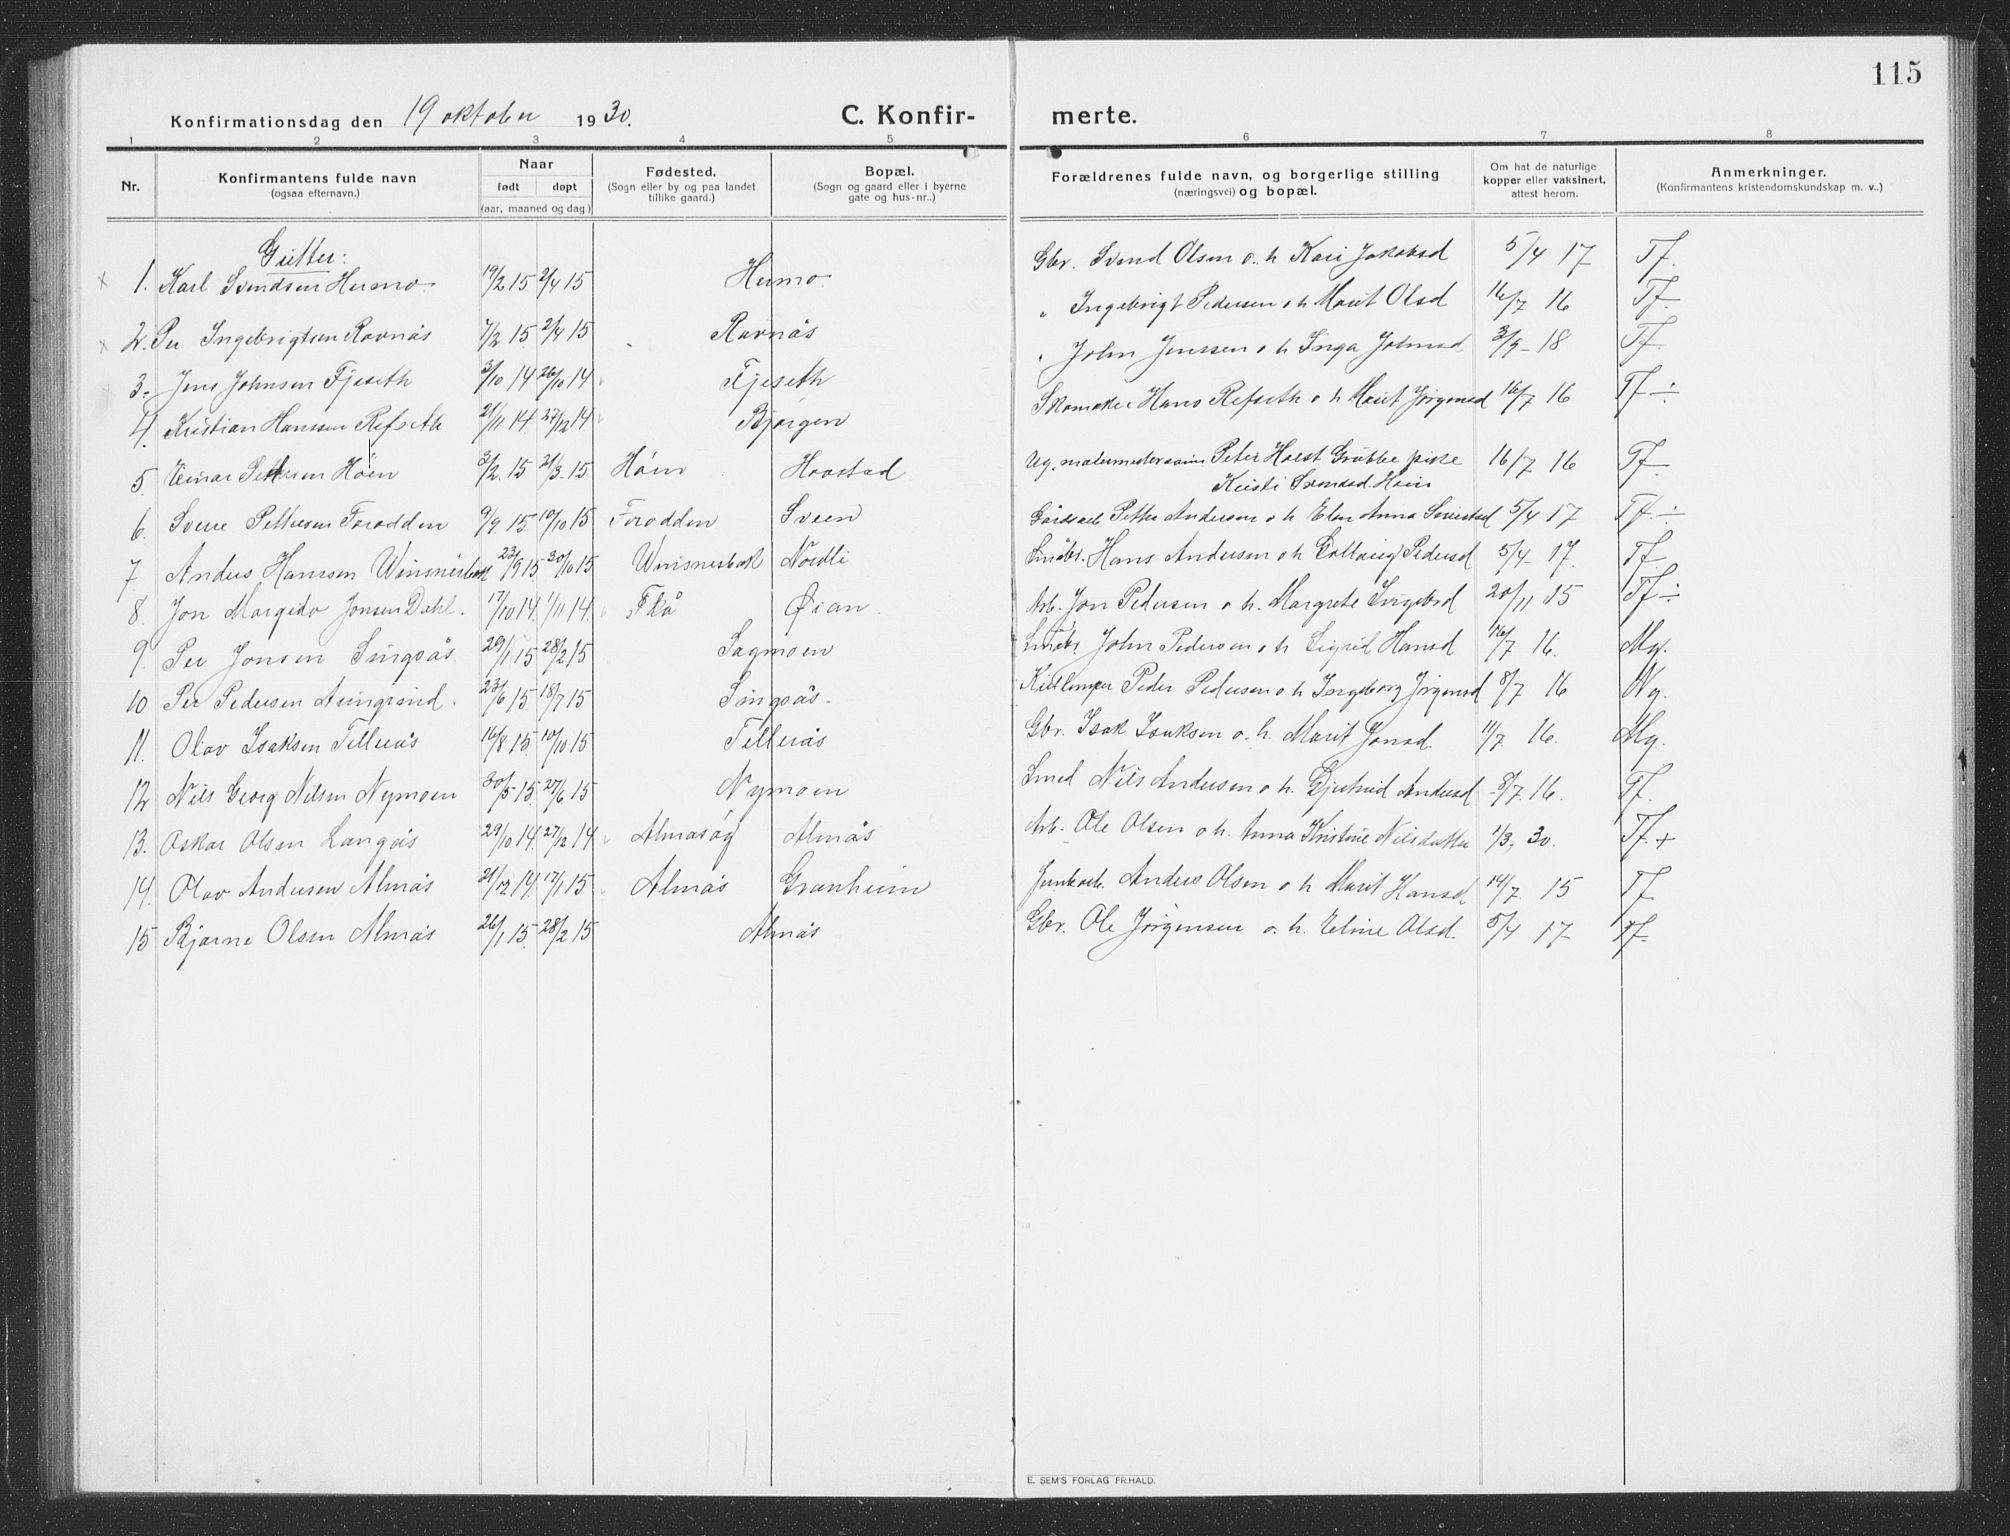 115
Konfirmationsdag den 19 oktober 1930. C. Konfir- merte.
1 2 3 4 5 6 7 8
Nr. Konfirmantens fulde navn (ogsaa efternavn.) Naar født døpt (aar, maaned og dag.) Fødested. (Sogn eller by og paa landet tillike gaard.) Bopæl. (Sogn og gaard eller i byerne gate og hus-nr..) Forældrenes fulde navn, og borgerlige stilling (næringsvei) og bopæl. Om hat de naturlige kopper eller vaksinert, attest herom. Anmerkninger. (Konfirmantens kristendomskundskap m. v..)
Gutter:
1. Karl Svendsen Hermo 19/2 15 2/4 15 Hermo Gbr. Svend Olsen o. h Kari Jakobsd 5/4 17 Tf.
2. Per Ingebrigtsen Ravnås 7/2 15 2/4 15 Ravnås " Ingebrigt Pedersen o h Marit Olsd 16/7 16 Tf.
3. Jens Johnsen Fjeseth 3/10 14 26/10 14 Fjeseth " John Jenssen o h Inga Johnsd 3/9 - 18 Tf.
4. Kristian Hanssen Refseth 21/11 14 27/12 14 Bjørgen Skomaker Hans Refseth o h Marit Jørgensd 16/7 16 Tf ÷
5. Einar Pettersen Höen 3/2 15 21/3 15 Höen Haastad Ug. Peter Holst Grubbe pike 16/7 16 Tf
Kirsti Svendsd. Höen
6. Sverre Pettersen Forodden 9/9 15 10/10 15 Forodden Sveen Gårdsarb Petter Andersen o h Elen Anna 5/4 17 Tf. ÷
7 Anders Hanssen Winsnesbak 23/9 15 30/10 15 Winsnesbak Nordli Småbr. Hans Andersen o h Pedersd 5/4 - 17. Tf.
8. Jon Margido Jonsen Dahl. 17/10 14. 1/11 14. Flå Øian. Arb. Jon Pedersen o h. Margrete Ingebrd 20/11 15 Tf ÷
9. Per Jonsen Singsås. 29/1 15 28/2 15 Sagmoen Småbr. John Pedersen o h Sigrid Hansd 16/7 16. Mg.
10 Per Pedersen Aungrind. 23/6 15 18/7 15 Singsås. Peder Pedersen o h Ingeborg Jørgensd 8/7 16 Ng.
11. Olav Isaksen Tellerås 16/8 15. 10/10 15 Tellerås Gbr. Isak Isaksen o. h. Marit Jonsd. 11/7 16. Mg.
12 Nils Georg Nilsen Nymoen 30/5 15. 27/6 15 Nymoen Smed Nils Andersen o h. Gjertrud Andersd 8/7. 16. Tf.
13. Oskar Olsen Langås 29/10 14. 27/12 14 Almåsög Almås Arb. Ole Olsen o h. Anna Kristine Nilsdatter 1/3, 30. Tf. +
14. Olav Andersen Almås 21/12 14. 17/1 15 Almås Granheim Jernbarb. Anders Olsen o h Marit Hansd 14/7 15 Tf
15 Bjarne Olsen Almås 26/1 15. 28/2 15 Almås Gbr. Ole Jørgensen o. h. Eline Olsd. 5/4 17- Tf.
E. SEM'S FORLAG FR.HALD.